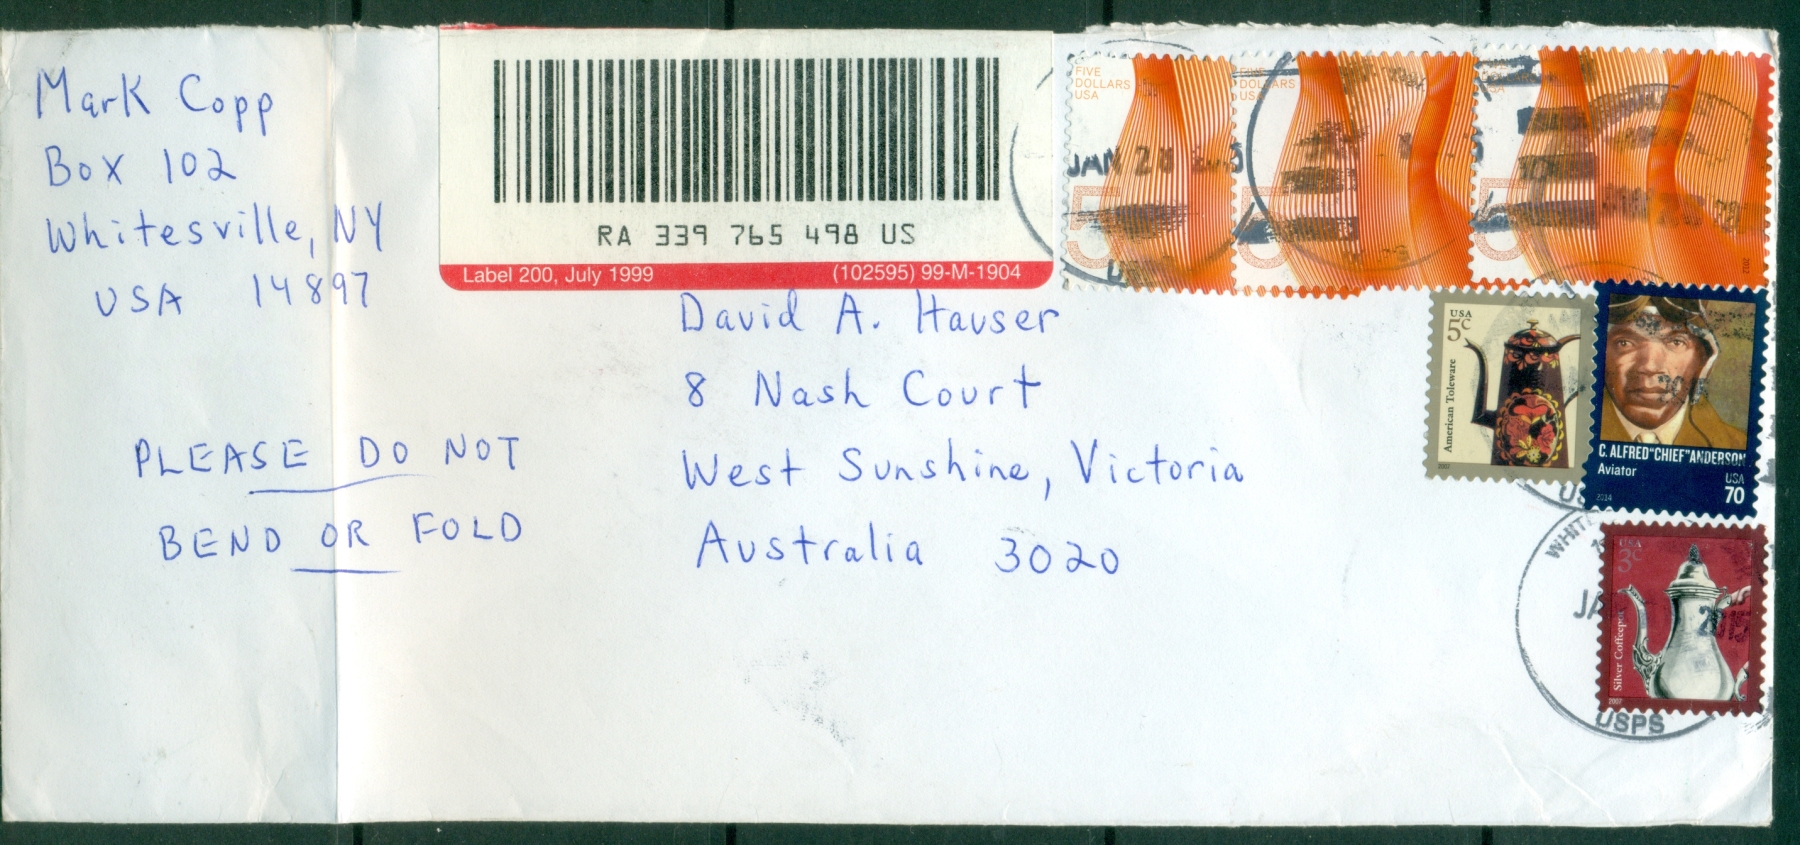 Mark Copp
Box 102
Whitesville, NY
USA 14897
RA 339 765 498 US
Label 200, July 1999 (102595) 99-M-1904
David A. Hauser
8 Nash Court
West Sunshine, Victoria
Australia 3020
PLEASE DO NOT
BEND OR FOLD
FIVE
DOLLARS
USA
5
JAN 28
FIVE
DOLLARS
USA
2012
USA
5c
American Toleware
2007
C. ALFRED "CHIEF" ANDERSON
Aviator
USA
70
2014
USA
3c
Silver Coffeepot
2007
USPS